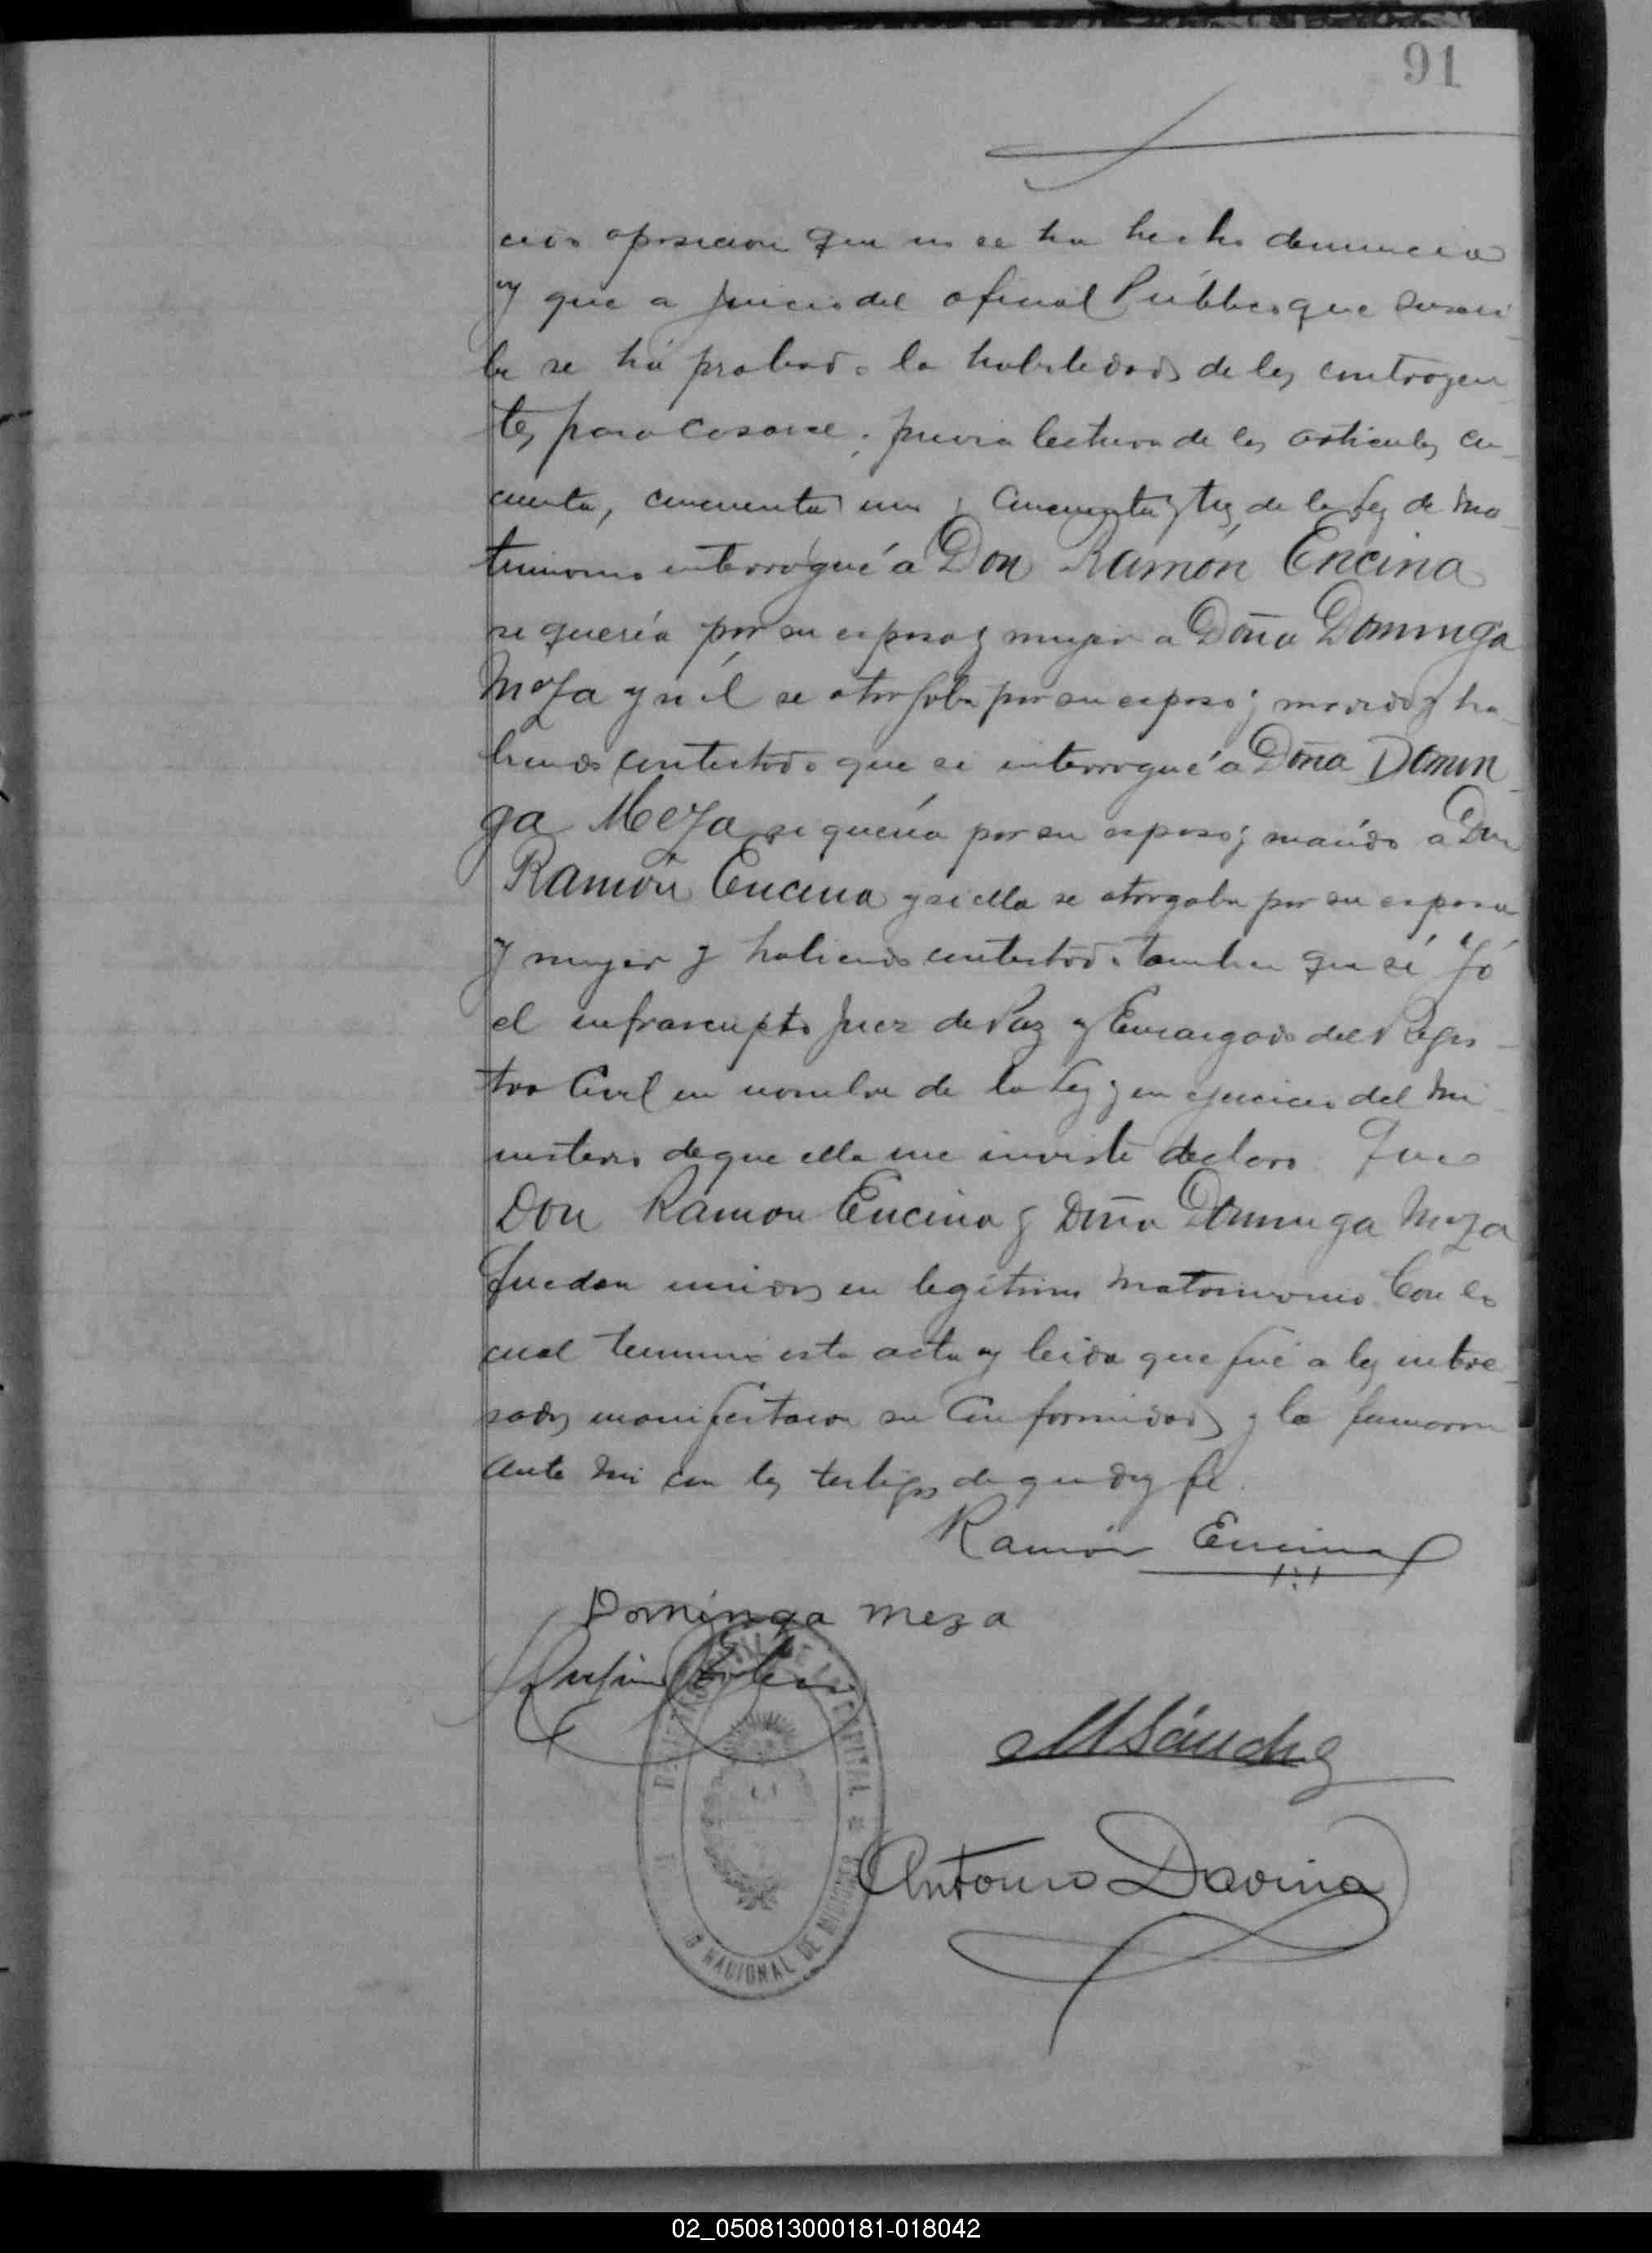 91
cido oposicion que no se ha hecho denuncia
y que a juicio del oficial Público que suscri-
be se ha probado la habilidad de los contrayen-
tes para casarse, previa lectura de los articulos cin-
cuenta, cincuenta uno y cincuenta y tres de la Ley de Ma-
trimonio interrogué á Don Ramón Encina
si quería por su esposa y mujer a Doña Dominga
Meza y si él se otorgaba por su esposo y marido y ha-
biendo contestado que si interrogué á Doña Domin-
ga Meza si quería por su esposo y marido a Don
Ramón Encina y si ella se otorgaba por su esposa
y mujer y habiendo contestado tambien que sí Yó
el infrascripto Juez de Paz y Encargado del Regis-
tro Civil en nombre de la Ley y en ejercicio del Mi-
nisterio de que ella me inviste declaro Que
Don Ramon Encina y Doña Dominga Meza
Quedan unidos en legítimo Matrimonio. Con lo
cual termino esta acta y leida que fué a los intere-
sados manifestaron su Conformidad y la firmaron
ante mi con los testigos de que doy fé.
Ramón Encina
Dominga meza
M Sánchez
Antonio Davina
REGISTRO CIVIL DE LA CAPITAL
NACIONAL DE MISIONES
02_050813000181-018042